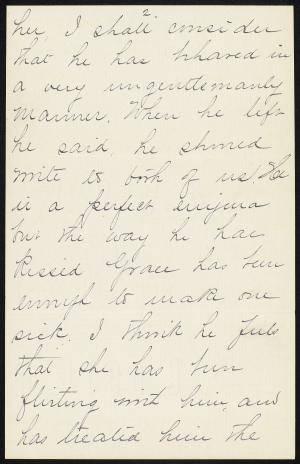 2
her, I shall consider
that he has behaved in
a very ungentlemanly
manner. When he left
he said he should
write to both of us! He
is a perfect enigma
but the way he has
kissed Grace has been
enough to make one
sick. I think he feels
that she has been
flirting with him, and
has treated him the